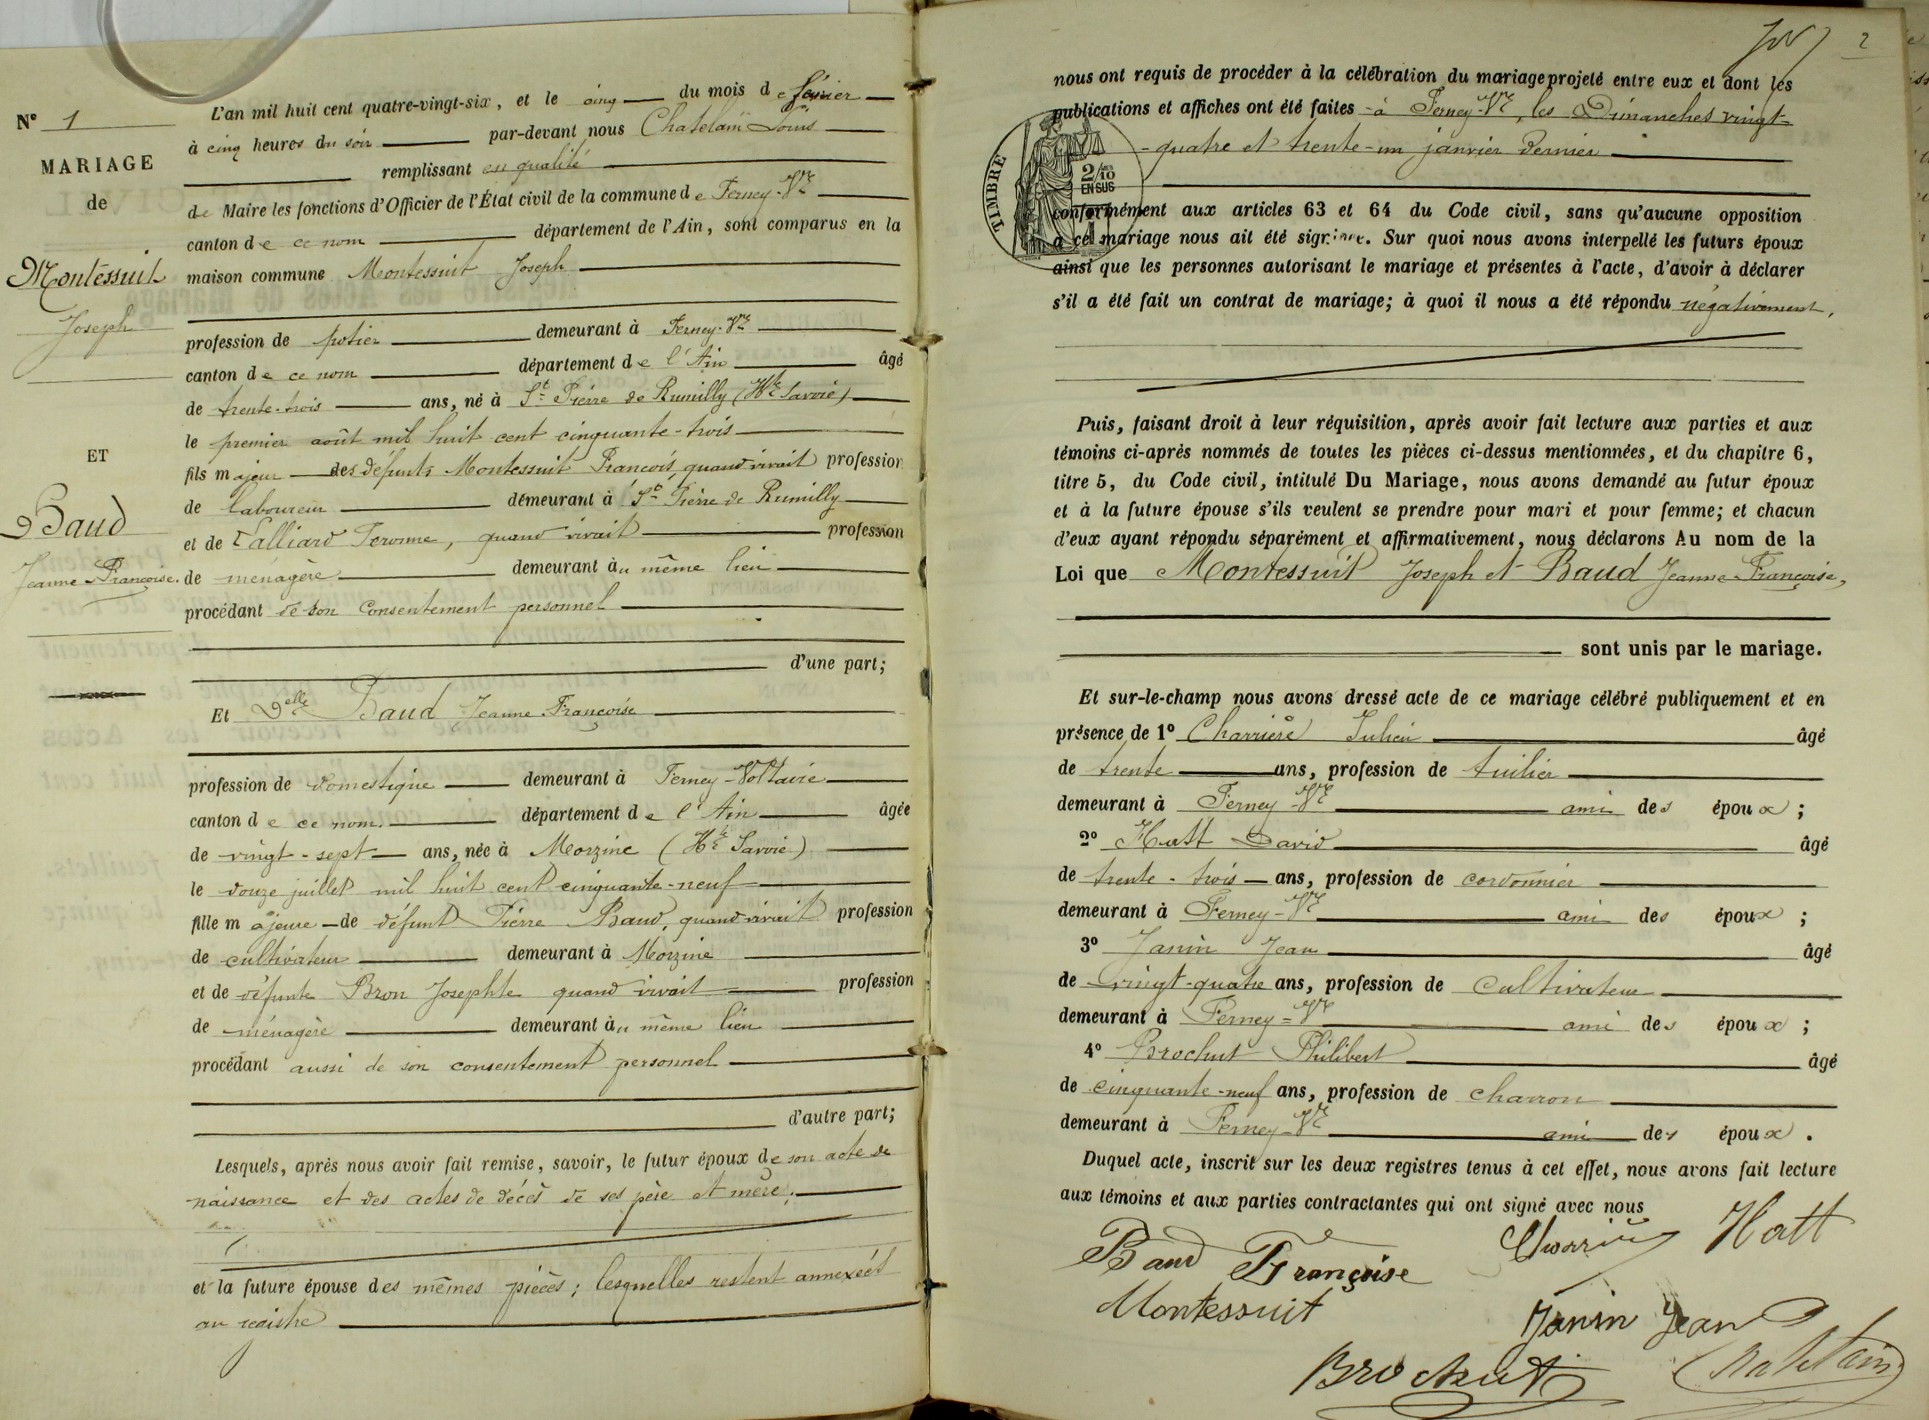 N° 1
MARIAGE
de
Montessuit
Joseph
ET
Baud
Jeanne-Françoise.
L'an mil huit cent quatre-vingt-six, et le cinq du mois de février
à cinq heures du soir par-devant nous Chatelain Louis
remplissant en qualité
de Maire les fonctions d'Officier de l'État civil de la commune de Ferney-Vre
canton de ce nom département de l'Ain, sont comparus en la
maison commune Montessuit Joseph
profession de potier demeurant à Ferney-Vre
canton de ce nom département de l'Ain âgé
de trente-trois ans, né à St Pierre de Rumilly (Hte Savoie)
le premier août mil huit cent cinquante-trois
fils majeur des défunts Montessuit François, quand vivait profession
de laboureur demeurant à St Pierre de Rumilly
et de Falliard Jeronne, quand vivait profession
de ménagère demeurant au même lieu
procédant de son consentement personnel
d'une part;
Et Delle Baud Jeanne Françoise
profession de domestique demeurant à Ferney-Voltaire
canton de ce nom. département de l'Ain âgée
de vingt-sept ans, née à Morzine (Hte Savoie)
le douze juillet mil huit cent cinquante-neuf
fille majeure de défunt Pierre Baud, quand vivait profession
de cultivateur demeurant à Morzine
et de défunte Bron Josephte quand vivait profession
de ménagère demeurant au même lieu
procédant aussi de son consentement personnel
d'autre part;
Lesquels, après nous avoir fait remise, savoir, le futur époux de son acte de
naissance et des actes de décès de ses père et mère;
et la future épouse des mêmes pièces; lesquelles restent annexées
au registre
2
nous ont requis de procéder à la célébration du mariage projeté entre eux et dont les
publications et affiches ont été faites à Ferney-Vre, les Dimanches vingt
-quatre et trente-un janvier dernier
TIMBRE
2/10
EN SUS
conformément aux articles 63 et 64 du Code civil, sans qu'aucune opposition
à cet mariage nous ait été signifiée. Sur quoi nous avons interpellé les futurs époux
ainsi que les personnes autorisant le mariage et présentes à l'acte, d'avoir à déclarer
s'il a été fait un contrat de mariage; à quoi il nous a été répondu négativement.
Puis, faisant droit à leur réquisition, après avoir fait lecture aux parties et aux
témoins ci-après nommés de toutes les pièces ci-dessus mentionnées, et du chapitre 6,
titre 5, du Code civil, intitulé Du Mariage, nous avons demandé au futur époux
et à la future épouse s'ils veulent se prendre pour mari et pour femme; et chacun
d'eux ayant répondu séparément et affirmativement, nous déclarons Au nom de la
Loi que Montessuit Joseph et Baud Jeanne-Françoise,
sont unis par le mariage.
Et sur-le-champ nous avons dressé acte de ce mariage célébré publiquement et en
présence de 1° Charrière Julien âgé
de trente ans, profession de tuilier
demeurant à Ferney-Vre ami des époux;
2° Hatt David âgé
de trente-trois ans, profession de cordonnier
demeurant à Ferney-Vre ami des époux;
3° Janin Jean âgé
de vingt-quatre ans, profession de Cultivateur
demeurant à Ferney-Vre ami des époux;
4° Brochut Philibert âgé
de cinquante-neuf ans, profession de charron
demeurant à Ferney-Vre ami des époux.
Duquel acte, inscrit sur les deux registres tenus à cet effet, nous avons fait lecture
aux témoins et aux parties contractantes qui ont signé avec nous
Baud Françoise Charrière Hatt
Montessuit Janin Jean
Brochut Chatelain